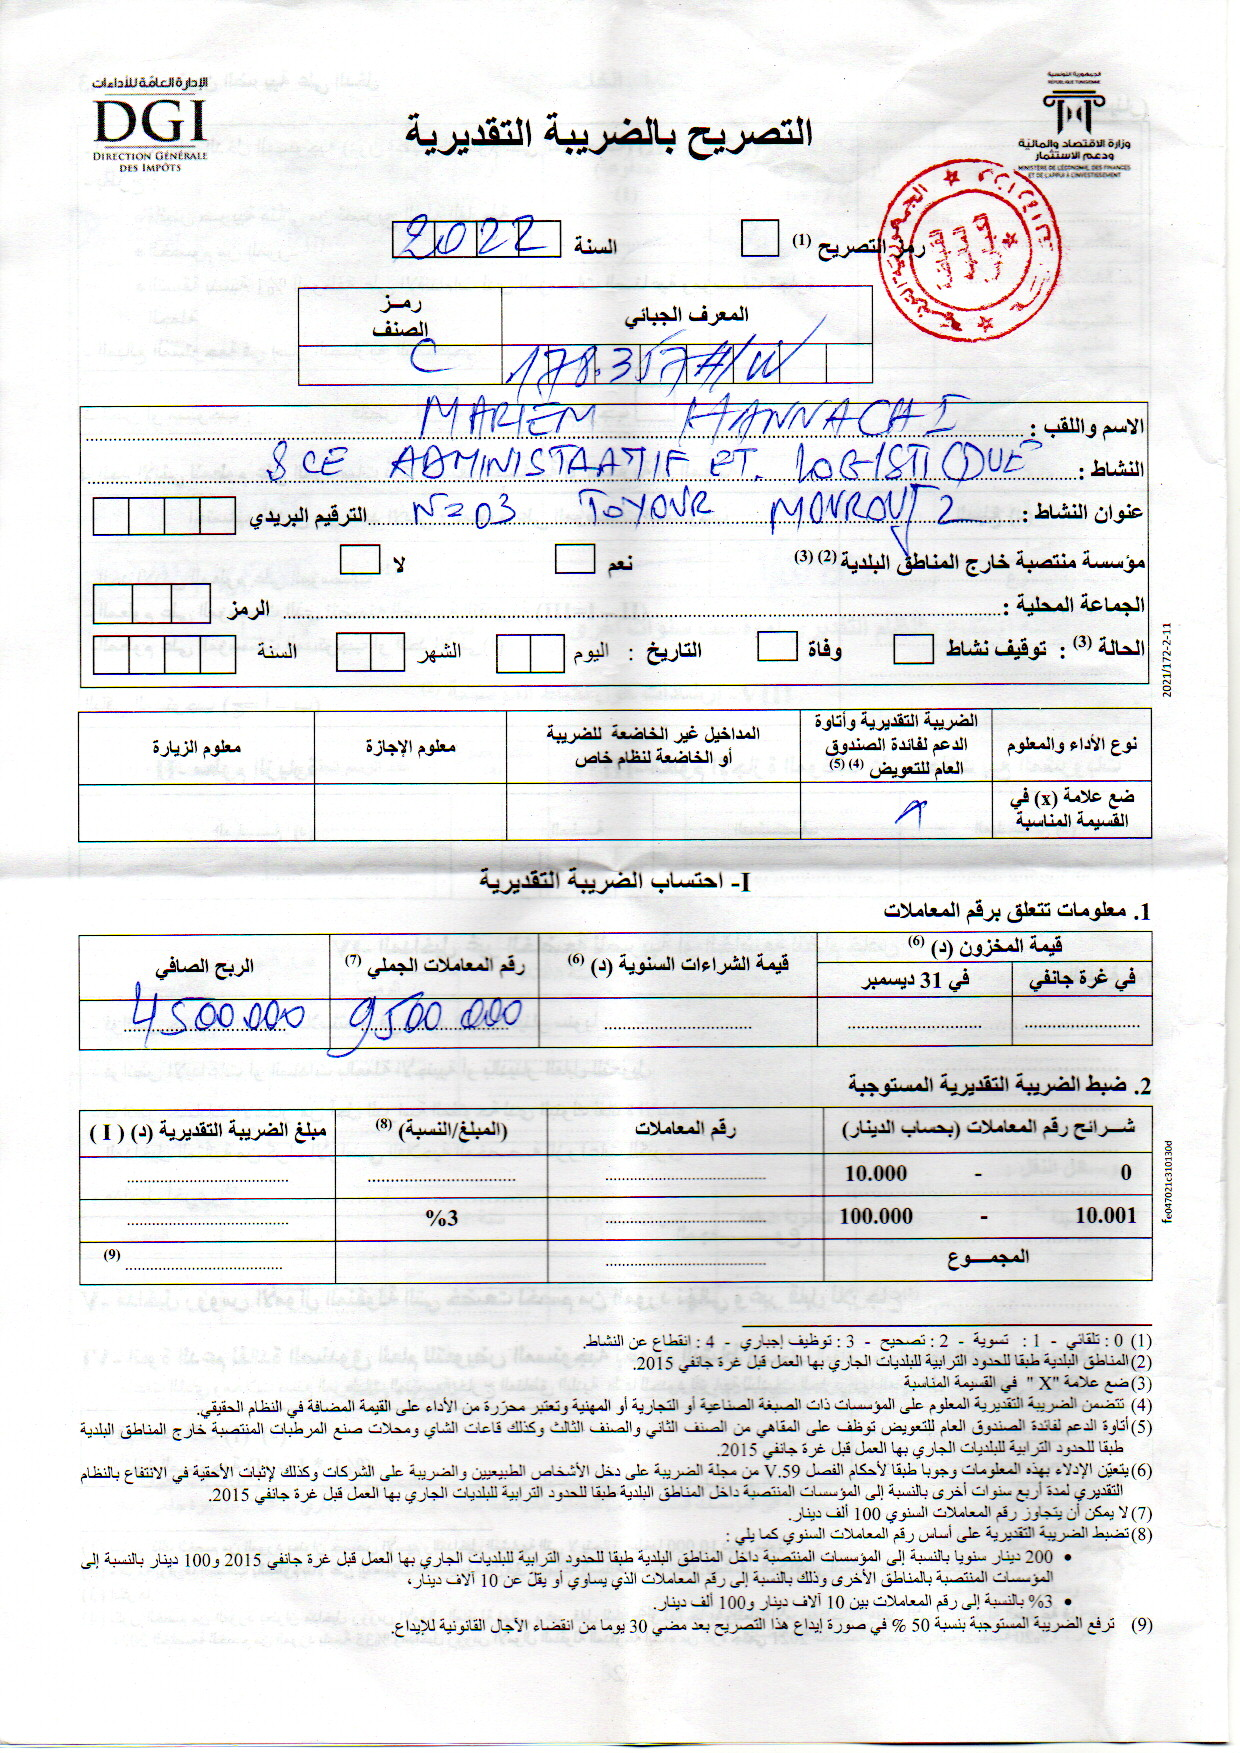 الإدارة العامة للأداءات
DGI
DIRECTION GÉNÉRALE
DES IMPÔTS
الجمهورية التونسية
REPUBLIQUE TUNISIENNE
وزارة الاقتصاد والمالية
ودعم الاستثمار
MINISTERE DE L'ECONOMIE, DES FINANCES
ET DE L'APPUI A L'INVESTISSEMENT
التصريح بالضريبة التقديرية
رمز التصريح (1) السنة 2022
المعرف الجبائي رمــز الصنف
C
الاسم واللقب : MARIEM HANNACHI
النشاط : SCE ADMINISTRATIF ET LOGISTIQUE
عنوان النشاط : N=03 TOYOUR MOUROUJ 2 الترقيم البريدي
مؤسسة منتصبة خارج المناطق البلدية (2) (3) نعم لا
الجماعة المحلية : الرمز
الحالة (3) : توقيف نشاط وفاة التاريخ : اليوم الشهر السنة
2021/172-2-11
نوع الأداء والمعلوم الضريبة التقديرية وأتاوة الدعم لفائدة الصندوق العام للتعويض (4) (5) المداخيل غير الخاضعة للضريبة أو الخاضعة لنظام خاص معلوم الإجازة معلوم الزيارة
ضع علامة (x) في القسيمة المناسبة
I- احتساب الضريبة التقديرية
1. معلومات تتعلق برقم المعاملات
قيمة المخزون (د) (6) قيمة الشراءات السنوية (د) (6) رقم المعاملات الجملي (7) الربح الصافي
في غرة جانفي في 31 ديسمبر
9500.000 4500.000
2. ضبط الضريبة التقديرية المستوجبة
شــرائح رقم المعاملات (بحساب الدينار) رقم المعاملات (المبلغ/النسبة) (8) مبلغ الضريبة التقديرية (د) ( I )
0 - 10.000
10.001 - 100.000 %3
المجمــوع (9)
fe047021c310130d
(1) 0 : تلقائي - 1 : تسوية - 2 : تصحيح - 3 : توظيف إجباري - 4 : انقطاع عن النشاط.
(2) المناطق البلدية طبقا للحدود الترابية للبلديات الجاري بها العمل قبل غرة جانفي 2015.
(3) ضع علامة "X" في القسيمة المناسبة
(4) تتضمن الضريبة التقديرية المعلوم على المؤسسات ذات الصبغة الصناعية أو التجارية أو المهنية وتعتبر محررة من الأداء على القيمة المضافة في النظام الحقيقي.
(5) أتاوة الدعم لفائدة الصندوق العام للتعويض توظف على المقاهي من الصنف الثاني والصنف الثالث وكذلك قاعات الشاي ومحلات صنع المرطبات المنتصبة خارج المناطق البلدية
طبقا للحدود الترابية للبلديات الجاري بها العمل قبل غرة جانفي 2015.
(6) يتعيّن الإدلاء بهذه المعلومات وجوبا طبقا لأحكام الفصل 59.V من مجلة الضريبة على دخل الأشخاص الطبيعيين والضريبة على الشركات وكذلك لإثبات الأحقية في الانتفاع بالنظام
التقديري لمدة أربع سنوات أخرى بالنسبة إلى المؤسسات المنتصبة داخل المناطق البلدية طبقا للحدود الترابية للبلديات الجاري بها العمل قبل غرة جانفي 2015.
(7) لا يمكن أن يتجاوز رقم المعاملات السنوي 100 ألف دينار.
(8) تضبط الضريبة التقديرية على أساس رقم المعاملات السنوي كما يلي :
• 200 دينار سنويا بالنسبة إلى المؤسسات المنتصبة داخل المناطق البلدية طبقا للحدود الترابية للبلديات الجاري بها العمل قبل غرة جانفي 2015 و100 دينار بالنسبة إلى
المؤسسات المنتصبة بالمناطق الأخرى وذلك بالنسبة إلى رقم المعاملات الذي يساوي أو يقل عن 10 آلاف دينار،
• 3% بالنسبة إلى رقم المعاملات بين 10 آلاف دينار و100 ألف دينار.
(9) ترفع الضريبة المستوجبة بنسبة 50 % في صورة إيداع هذا التصريح بعد مضي 30 يوما من انقضاء الآجال القانونية للإيداع.